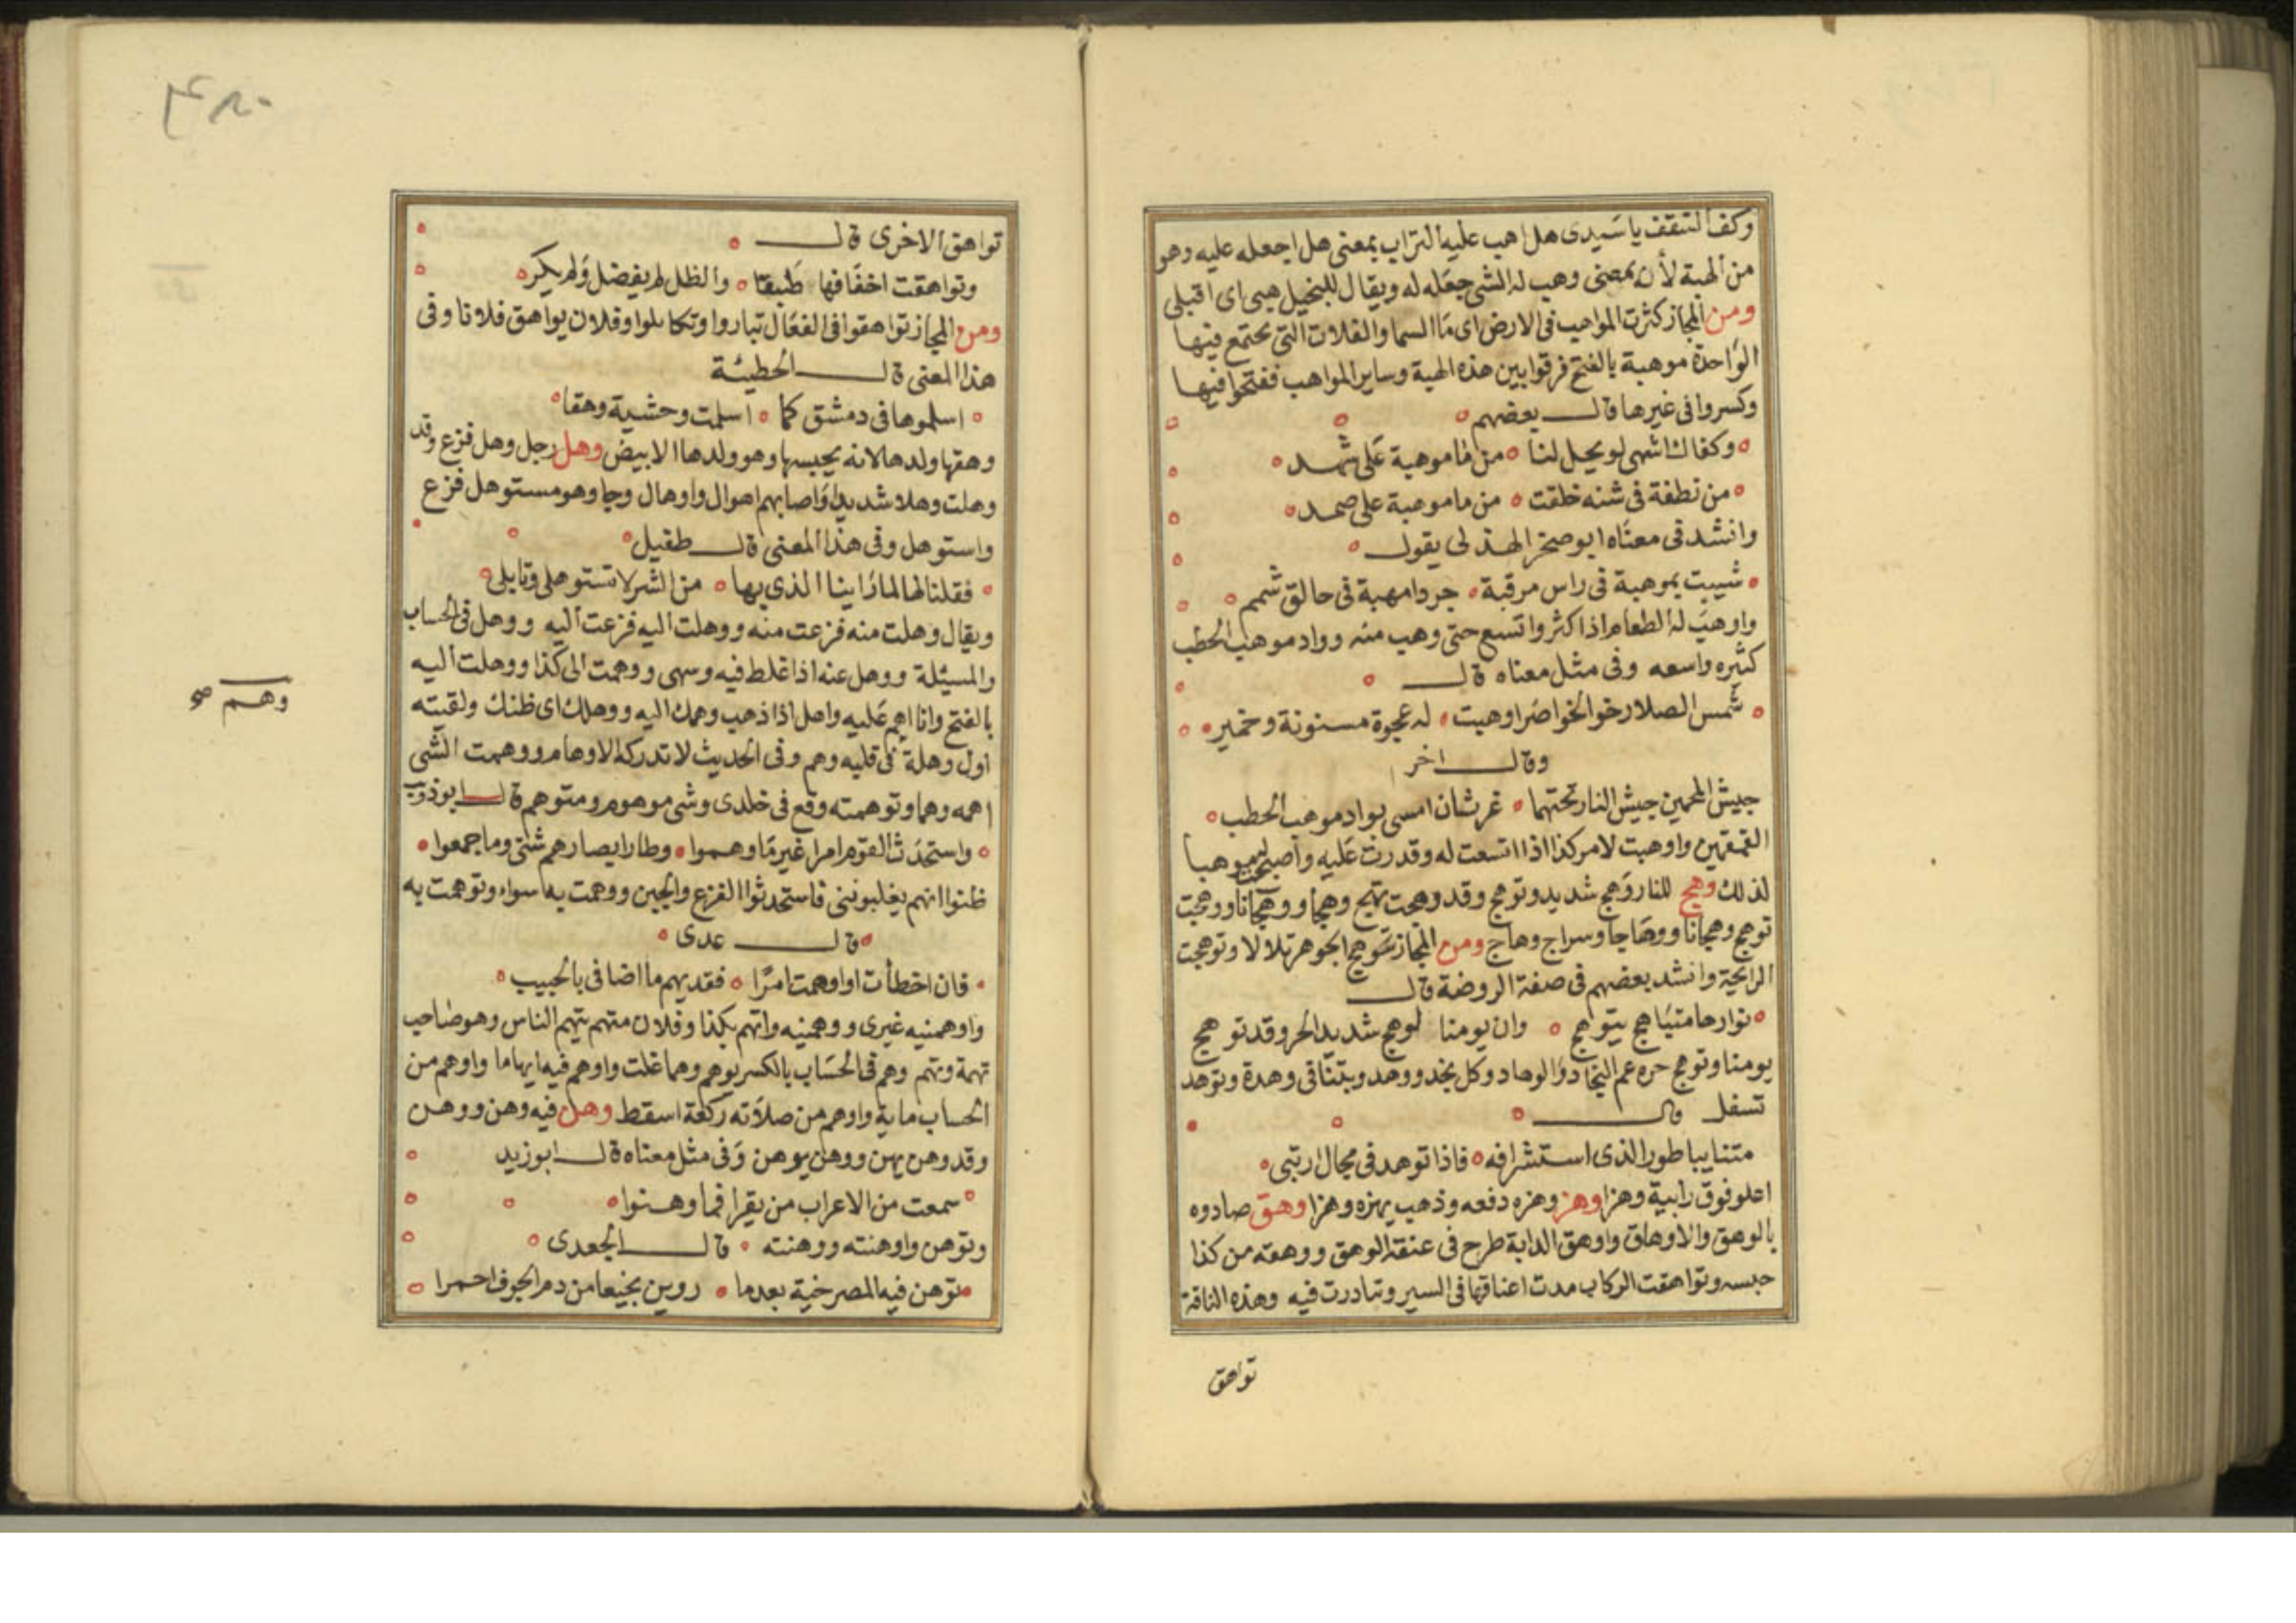 وكف التثقف يا سيدى هل اهب عليه التراب بمعنى هل اجعله عليه وهو
من الهبة لأن بمعنى وهب له الشى جعله له ويقال للبخيل هبى اى اقبلى
ومن المجاز كثرت المواهب فى الارض اى ماا السما والفلات التى تجتمع فيها
الواحدة موهبة بالفتح فرقوا بين هذه الهبة وساير المواهب ففتحوا فيها
وكسروا فى غيرها قال بعضهم
وكفاك اشهى لو يحل لنا من ما موهبة على شهد
من نطفة فى شنه خلقت من ما موهبة على صمد
وانشد فى معناه ابو صخر الهذلى يقول
شيبت بموهبة فى راس مرقبة جردا مهبة فى حالق شمم
واوهب له الطعام اذا كثر واتسع حتى وهب منه وواد موهب الحطب
كثيره واسعه وفى مثل معناه قال
شمس الصلا رخو الخواضر اوهبت له عجوة مسنونة وخمير
وقال اخر
جيش المحمين جيش النار تحتهما غرثان امسى بواد موهب الحطب
القمقمين واوهبت لامر كذا اذا اتسعت له وقدرت عليه واصبحت موهبا
لذلك وهج للنار وهج شديد وتوهج وقد وهجت تهج وهجا ووهجانا ووهجت
توهج وهجانا ووهاجا وسراج وهاج ومن المجاز توهج الجوهر تلالا وتوهجت
الرايحة وانشد بعضهم فى صفة الروضة قال
نوارها متباهج يتوهج وان يومنا لوهج شديد الحر وقد توهج
يومنا وتوهج حره عم النجاد والوهاد وكل نجد ووهد وبتنا فى وهدة وتوهد
تسفل قال
متنايبا طور الذى استشرافه فاذا توهد فى مجال ارتبى
اعلو فوق رابية وهزا وهز وهزه دفعه وذهب يهزه وهزا وهق صادوه
بالوهق والاوهاق واوهق الدابة طرح فى عنقه الوهق ووهقه من كذا
حبسه وتواهقت الركاب مدت اعناقها فى السير وتبادرت فيه وهذه الناقة
تواهق
تواهق الاخرى قال
وتواهقت اخفافها طبقا والظل لم يفضل ولم يكر
ومن المجاز تواهقوا فى الفعال تباروا وتكايلوا وفلان يواهق فلانا وفى
هذا المعنى قال الحطيئة
اسلموها فى دمشق كما اسلمت وحشية وهقا
وهقها ولدها لانه يحبسها وهو ولدها الابيض وهل رجل وهل فزع وقد
وهلت وهلا شديدا واصابهم اهوال واوهال وجا وهو مستوهل فزع
واستوهل وفى هذا المعنى قال طفيل
فقلنا لها لما راينا الذى بها من الشر لا تستوهلى وتابلى
ويقال وهلت منه فزعت منه ووهلت اليه فزعت اليه ووهل فى الحساب
والمسئلة ووهل عنه اذا غلط فيه وسهى ووهمت الى كذا ووهلت اليه
بالفتح وانا اهم عليه واهل اذا ذهب وهمك اليه ووهلك اى ظنك ولقيته
اول وهلة فى قلبه وهم وفى الحديث لا تدركه الاوهام ووهمت الشى
اهمه وهما وتوهمته وقع فى خلدى وشى موهوم ومتوهم قال ابو ذويب
واستحدث القوم امرا غير ما وهموا وطار ابصارهم شتى وما جمعوا
ظنوا انهم يغلبوننى فاستحدثوا الفزع والجبن ووهمت به سواء وتوهمت به
قال عدى
فان اخطأت او اوهمت امرا فقد يهم ما اضا فى بالحبيب
واوهمنيه غيرى ووهمنيه واتهم بكذا وفلان متهم يتهم الناس وهو صاحب
تهمة وتهم وهم فى الحساب بالكسر يوهم وهما غلت واوهم فيه ايهاما واوهم من
الحساب ماية واوهم من صلاته ركعة اسقط وهن فيه وهن ووهن
وقد وهن يهن ووهن يوهن وفى مثل معناه قال ابو زيد
سمعت من الاعراب من يقرا فما وهنوا
وتوهن واوهنته ووهنته قال الجعدى
توهن فيه المصرخية بعدما روين نجيعا من دم الجوف احمرا
وهم صح